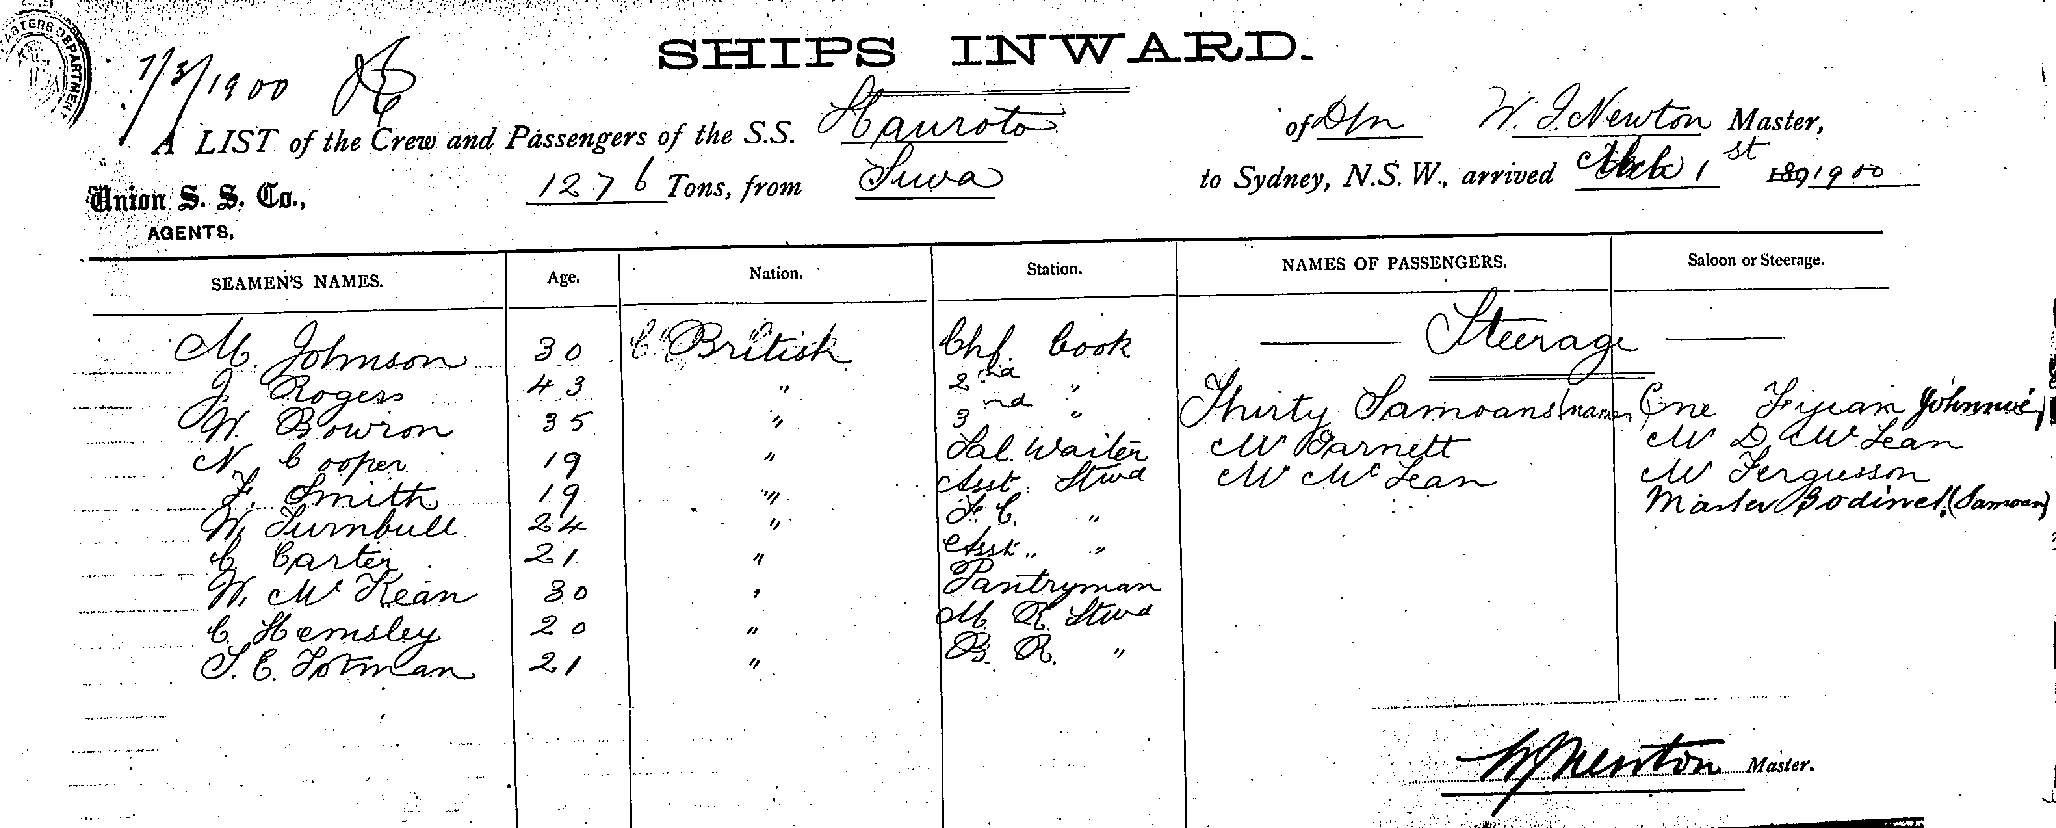 MASTERS DEPARTMENT
1/3/1900
SHIPS INWARD.
A LIST of the Crew and Passengers of the S.S. Hauroto of Dln W. J. Newton Master,
Union S. S. Co., AGENTS, 1276 Tons, from Suva to Sydney, N.S.W., arrived Mch 1st 189 1900
SEAMEN'S NAMES. Age. Nation. Station. NAMES OF PASSENGERS. Saloon or Steerage.
Steerage
M. Johnson 30 British Chf. Cook
J. Rogers 43 " 2nd "
W. Bowron 35 " 3rd " Thirty Samoans (names) One Fijian Johnnie,
N. Cooper 19 " Sal. Waiter Mr Barnett Mr D McLean
F. Smith 19 " Asst. Stwd Mr McLean Mr Fergusson
W. Turnbull 24 " F. C. " Master Bodinet, (Samoan)
C. Carter 21 " Asst. "
W. McKean 30 " Pantryman
C. Hemsley 20 " M. R. Stwd
T. E. Totman 21 " B. R. "
W J Newton Master.